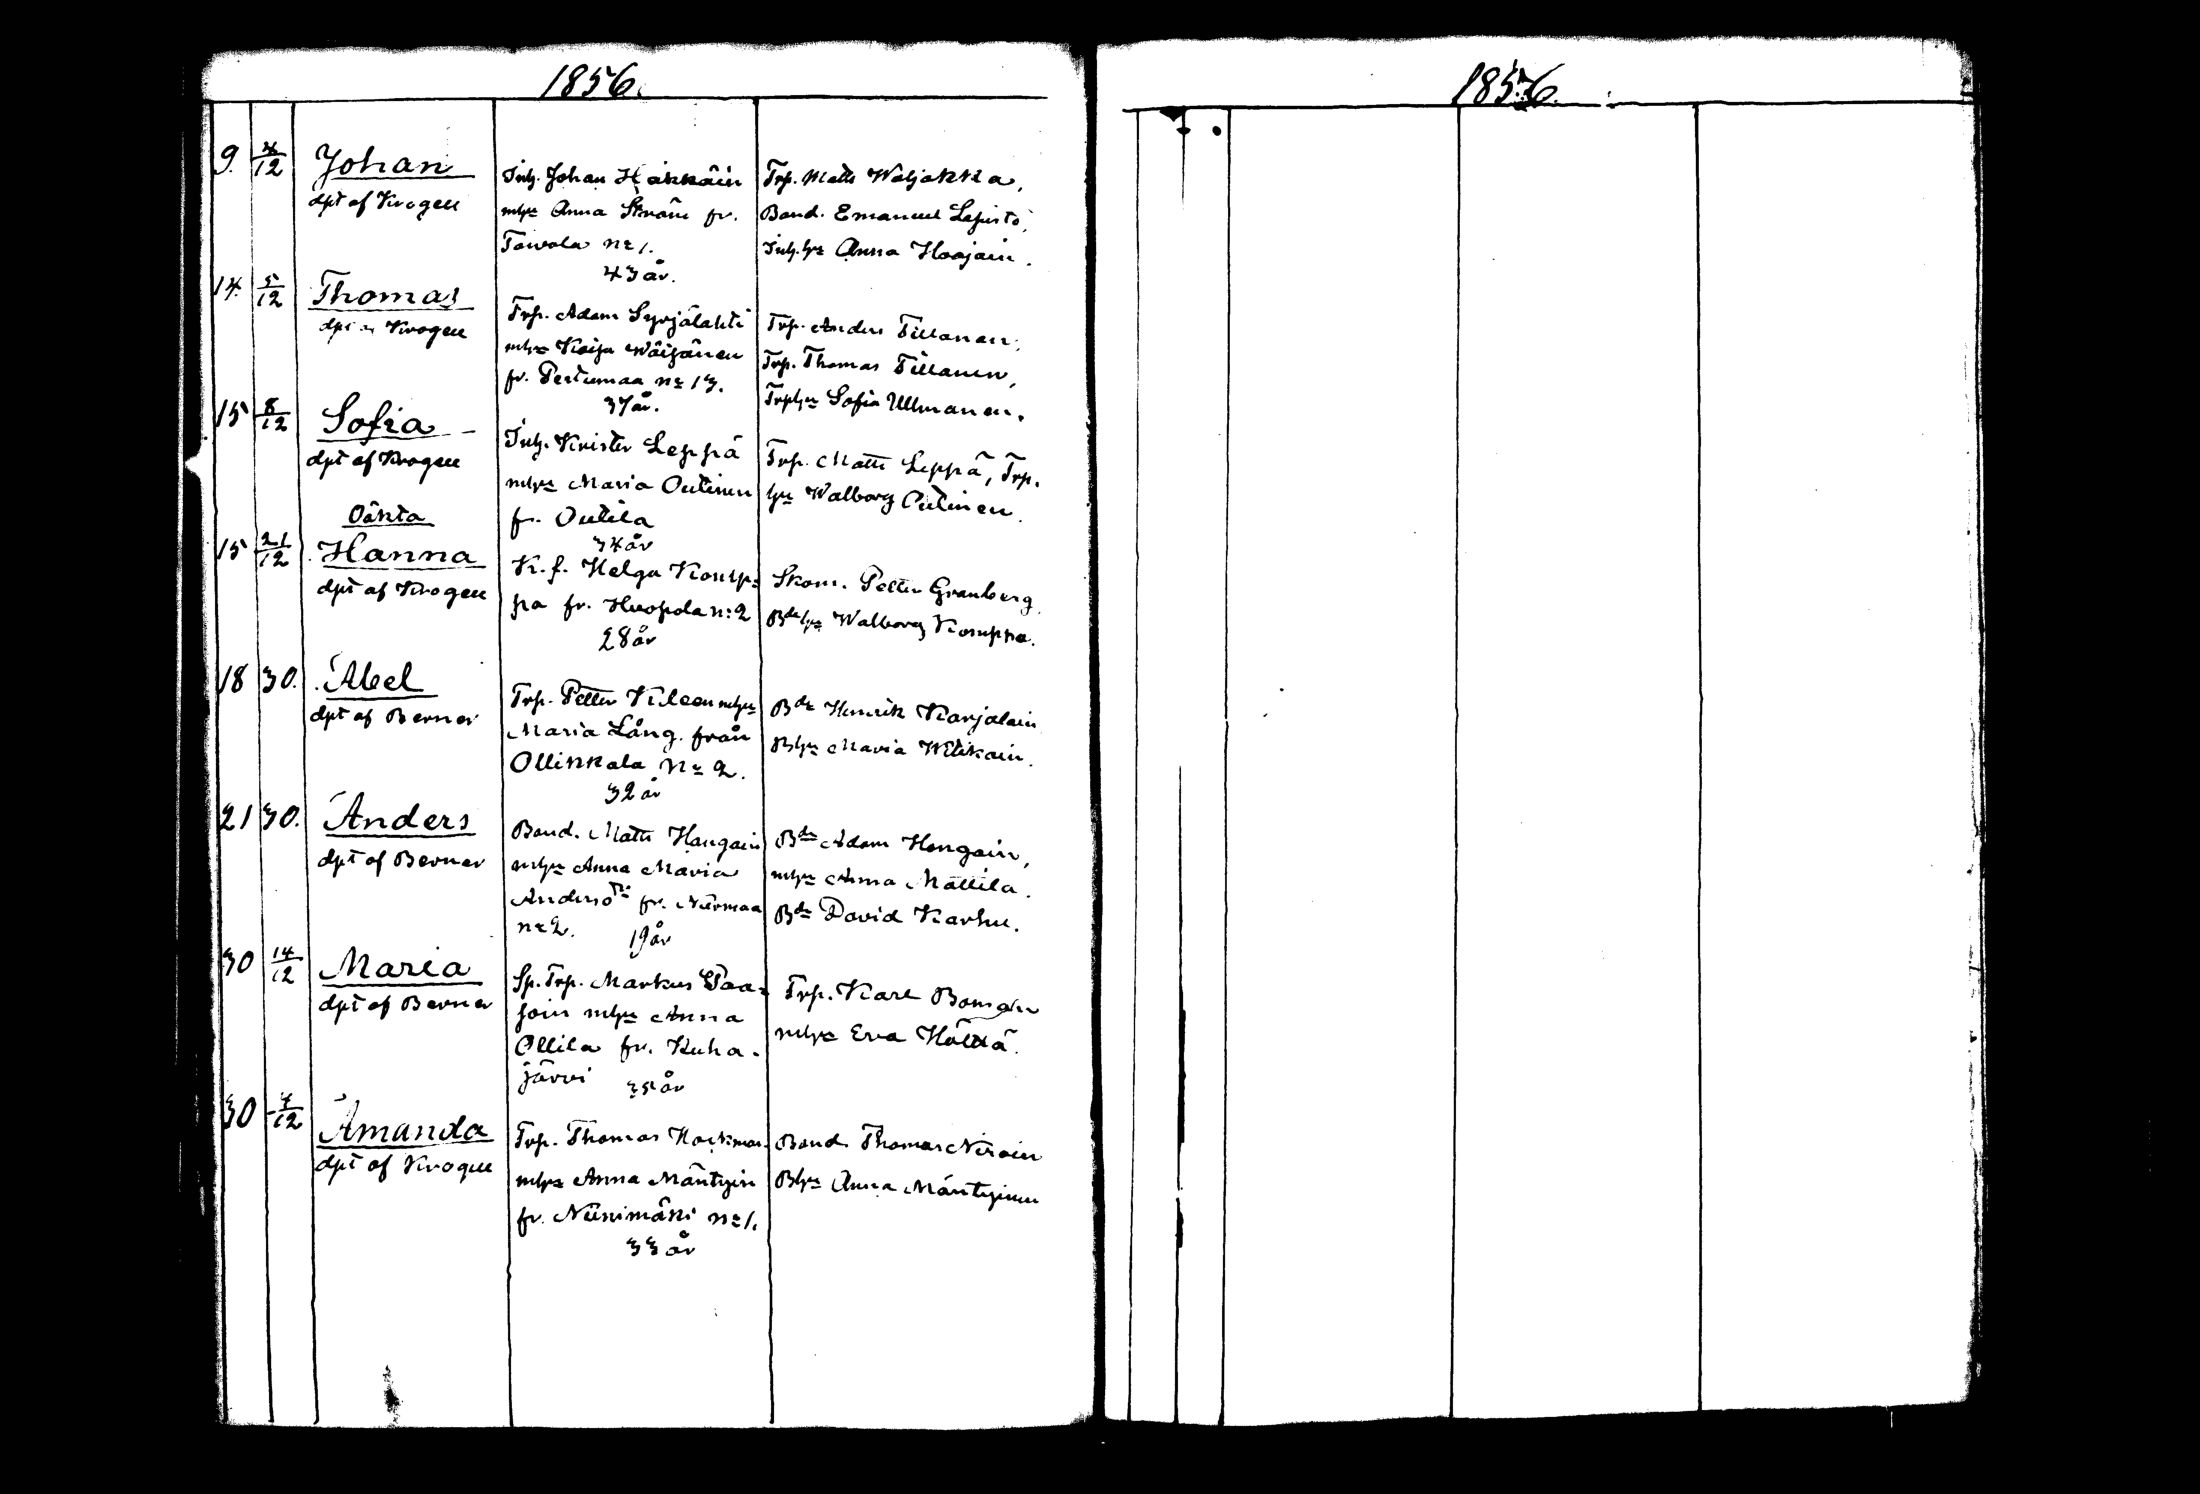 1856.
9. 4/12 Johan
dpt af Krogell
Inh. Johan Häkkäin
mhu Anna Ström fr.
Tavola No 1.
43 år.
Trp. Matts Waljakka,
Bond. Emanuel Lepistö,
Inh. hu Anna Haajain.
14. 5/12 Thomas
dpt af Krogell
Trp. Adam Syrjälahti
mhu Kaisa Wäisänen
fr. Pertumaa No 13.
37 år.
Trp. Anders Tillanen,
Trp. Thomas Tillanen,
Trphu Sofia Ullmanen.
15 8/12 Sofia
dpt af Krogell
Inh. Krister Leppä
mhu Maria Outinen
fr. Outila
34 år
Trp. Matts Leppä, Trp.
hu Walborg Outinen.
Oäkta
15 21/12 Hanna
dpt af Krogell
K.f. Helga Komp=
pa fr. Huopola No 2
28 år
Skom. Petter Granberg
Bdehu Walborg Komppa.
18 30. Abel
dpt af Berner
Trp. Petter Kileen mhu
Maria Lång från
Ollikkala No 2.
32 år
Bde Henrik Karjalain
Bhu Maria Witikain.
21 30. Anders
dpt af Berner
Bond. Matts Hangain
mhu Anna Maria
Andersdtr fr. Nurmaa
No 2. 19 år
Bde Adam Hangain,
mhu Anna Mattila.
Bde David Karhu.
30 14/12 Maria
dpt af Berner
Sp. Trp. Markus Paa=
soin mhu Anna
Ollila fr. Kuha-
järvi 35 år
Trp. Karl Boman
mhu Eva Hölttä.
30 7/12 Amanda
dpt af Krogell
Trp. Thomas Hackman
mhu Anna Mäntyin
fr. Niinimäki No 1.
33 år
Bond. Thomas Niroin
Bhu Anna Mäntyinen
1856.